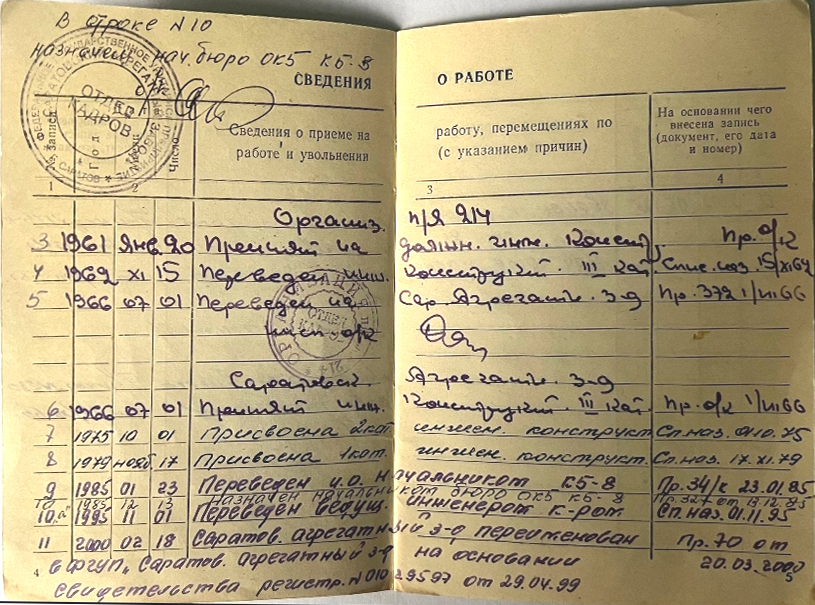 В строке N 10
назначен нач. бюро ОКБ КБ-8
СВЕДЕНИЯ О РАБОТЕ
ОТДЕЛ КАДРОВ
САРАТОВ
№ записи
Число
Сведения о приеме на работу, перемещениях по
работе и увольнении (с указанием причин)
На основании чего
внесена запись
(документ, его дата
и номер)
1 2 3 4
Организ. п/я 214
3 1961 Янв. 20 Принят на должн. инж. Констр. Пр. о/к
4 1962 XI 15 Переведен инж. Конструкт. III Кат. Спис. наз. 15/XI 62
5 1966 07 01 Переведен на Сар. Агрегатн. з-д Пр. 372 1/VII 66
ОТДЕЛ КАДРОВ
214
Саратовск. Агрегатн. З-д
6 1966 07 01 Принят инж. Конструкт. III Кат. Пр. о/к 1/VII 66
7 1975 10 01 Присвоена 2 кат. инжен. конструкт. Сп. наз. 01.10.75
8 1979 нояб 17 Присвоена 1 кат. инжен. конструкт. Сп. наз. 17.XI.79
9 1985 01 23 Переведен и.о. начальником КБ-8 Пр. 34/к 23.01.85
10 1985 12 13 назначен начальником бюро ОКБ КБ-8 Пр. 327 от 13.12.85
10.а 1995 11 01 Переведен ведущ. инженером к-ром. Сп. наз. 01.11.95
11 2000 02 18 Саратов. агрегатный з-д переименован Пр. 70 от
в ФГУП "Саратов. агрегатный з-д на основании 20.03.2000
свидетельства регистр. N 01029597 от 29.04.99
4 5